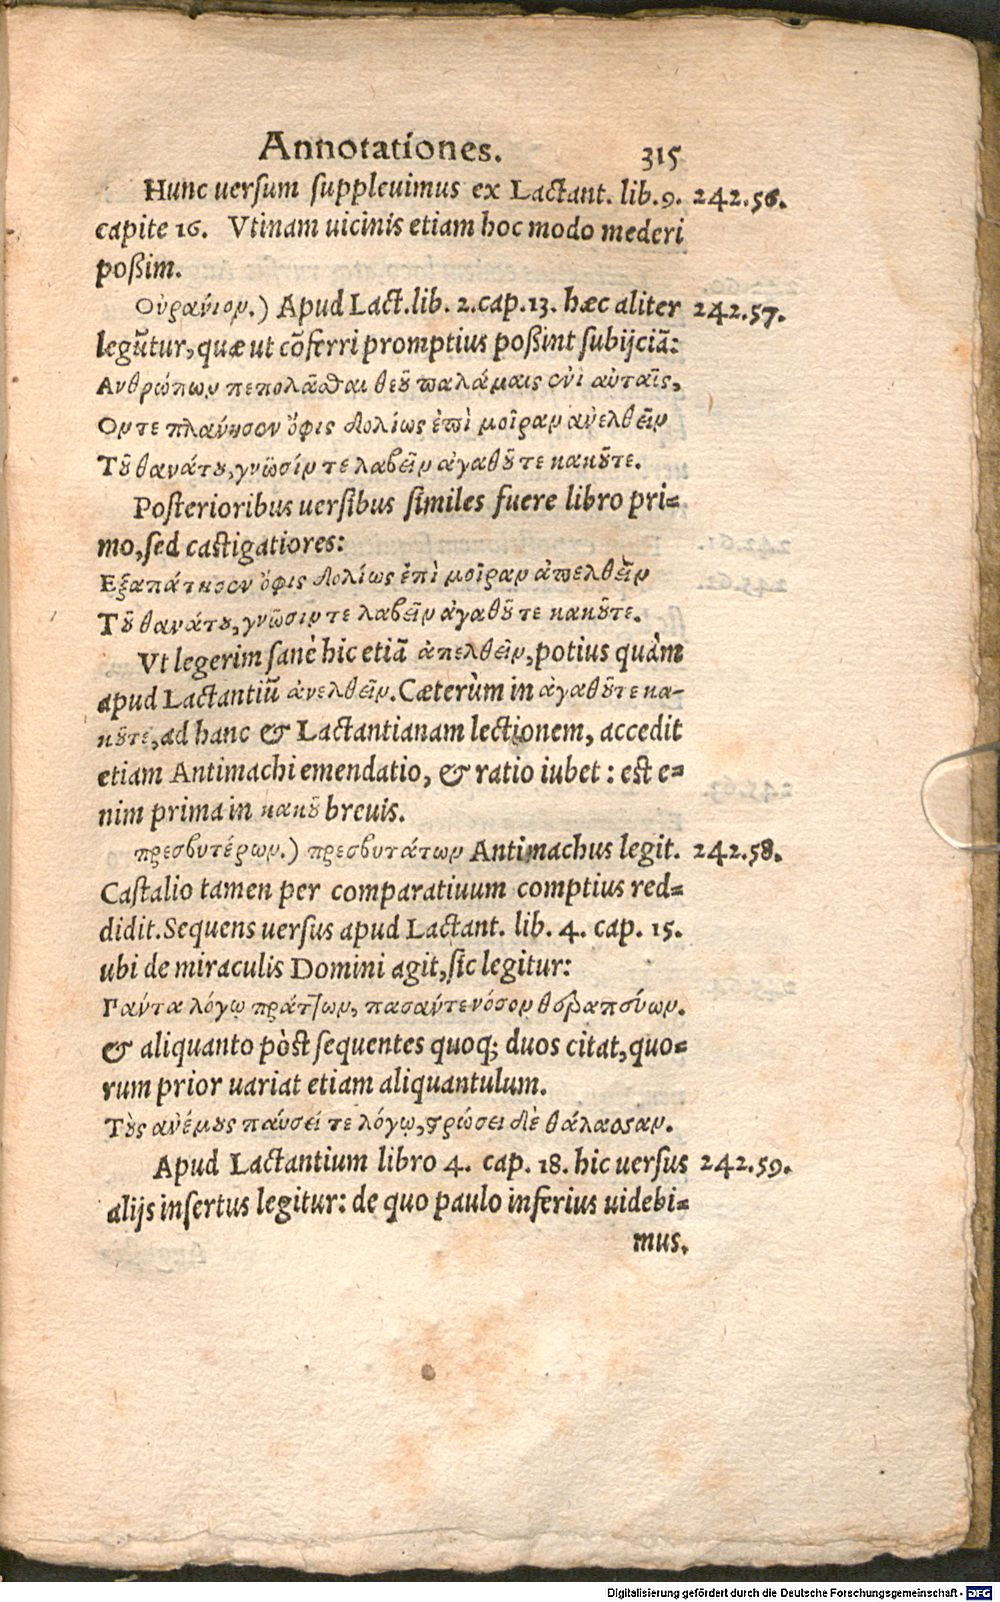 Annotationes. 315
Hunc uersum suppleuimus ex Lactant. lib. 9. 242.56.
capite 16. Vtinam uicinis etiam hoc modo mederi
poßim.
Οὐράνιον.) Apud Lact. lib. 2. cap. 13. hæc aliter 242.57.
legūtur, quæ ut cōferri promptius poßint subijciā:
Ανθρώπων πεπολᾶσθαι θεοῦ παλάμαις ἐνὶ αὐταῖς,
Ον τε πλάνησεν ὄφις δολίως ἐπὶ μοῖραν ἀνελθεῖν
Τοῦ θανάτου, γνῶσίν τε λαβεῖν ἀγαθοῦ τε κακοῦτε.
Posterioribus uersibus similes fuere libro pri=
mo, sed castigatiores:
Εξαπάτησεν ὄφις δολίως ἐπὶ μοῖραν ἀπελθεῖν
Τοῦ θανάτου, γνῶσιν τε λαβεῖν ἀγαθοῦ τε κακοῦτε.
Vt legerim sanè hic etiā ἀπελθεῖν, potius quàm
apud Lactantiū ἀνελθεῖν. Cæterùm in ἀγαθοῦτε κα-
κοῦτε, ad hanc & Lactantianam lectionem, accedit
etiam Antimachi emendatio, & ratio iubet: est e=
nim prima in κακοῦ breuis.
πρεσβυτέρων.) πρεσβυτάτων Antimachus legit. 242.58.
Castalio tamen per comparatiuum comptius red=
didit. Sequens uersus apud Lactant. lib. 4. cap. 15.
ubi de miraculis Domini agit, sic legitur:
Πάντα λόγῳ πράττων, πασαύτε νόσον θεραπεύων.
& aliquanto pòst sequentes quoq; duos citat, quo=
rum prior uariat etiam aliquantulum.
Τοὺς ἀνέμους παύσει τε λόγῳ, στρώσει δὲ θάλασσαν.
Apud Lactantium libro 4. cap. 18. hic uersus 242.59.
alijs insertus legitur: de quo paulo inferius uidebi=
mus.
Digitalisierung gefördert durch die Deutsche Forschungsgemeinschaft - DFG